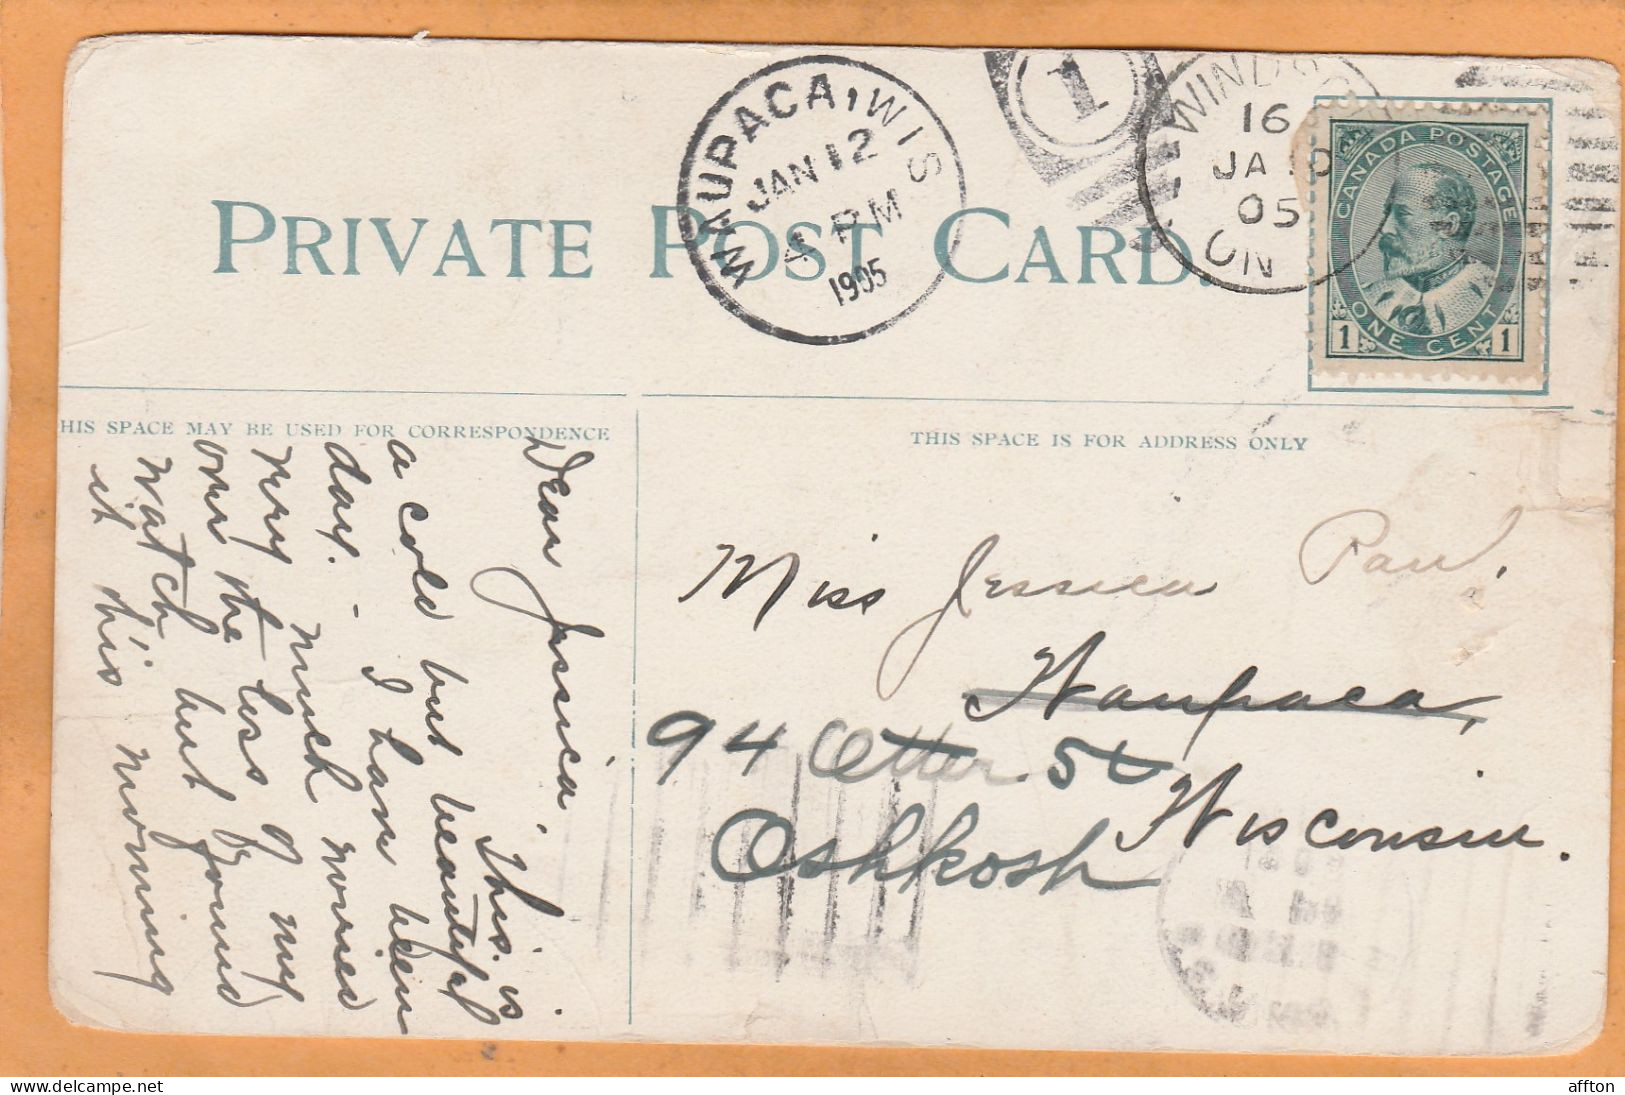 PRIVATE POST CARD.
WAUPACA, WIS
JAN 12
4 PM
1905
1
WINDSOR
16
JA 10
05
ON
CANADA POSTAGE
1 ONE CENT 1
HIS SPACE MAY BE USED FOR CORRESPONDENCE
THIS SPACE IS FOR ADDRESS ONLY
Dear Jessica.
This is
a cold but beautiful
day. - I have been
very much worried
over the loss of my
watch but found
it this morning
Miss Jessica Paul.
Waupaca,
94 Otter St
Wisconsin.
Oshkosh
affton